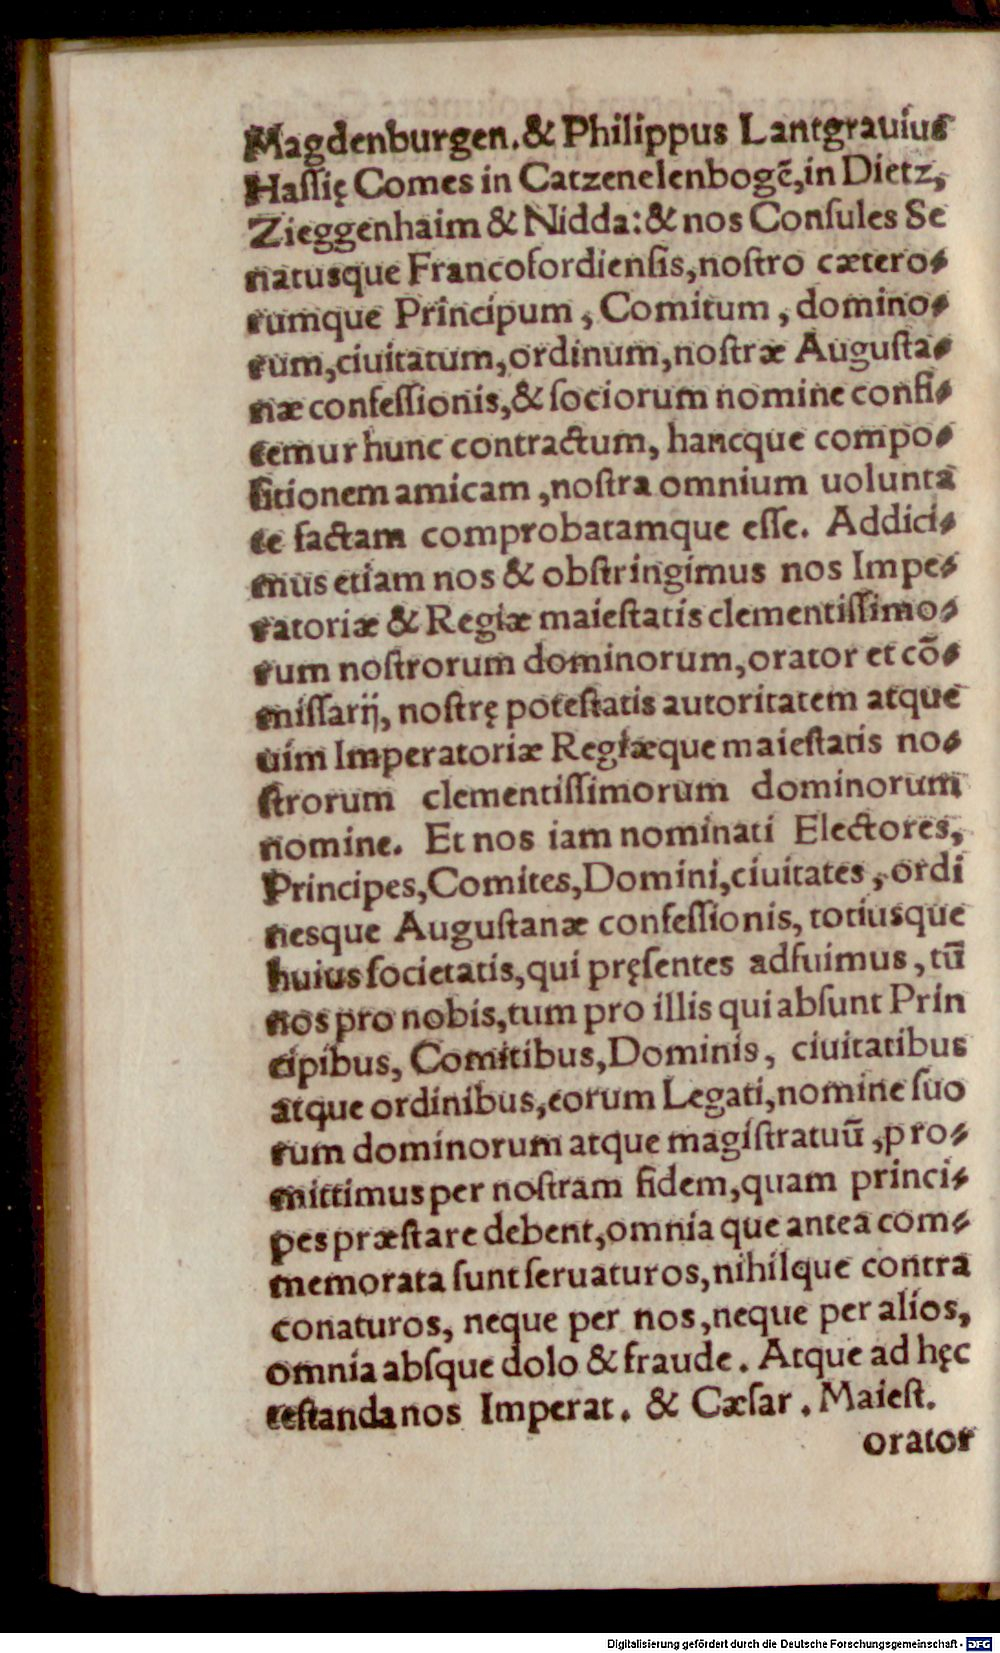 Magdenburgen. & Philippus Lantgrauius
Haſſię Comes in Catzenelenbogē, in Dietz,
Zieggenhaim & Nidda: & nos Conſules Se
natusque Francofordienſis, noſtro cætero⸗
rumque Principum, Comitum, domino⸗
rum, ciuitatum, ordinum, noſtræ Auguſta⸗
næ confeſſionis, & ſociorum nomine confi⸗
temur hunc contractum, hancque compo⸗
ſitionem amicam, noſtra omnium uolunta
te factam comprobatamque eſſe. Addici⸗
mus etiam nos & obſtringimus nos Impe⸗
ratoriæ & Regiæ maieſtatis clementiſſimo⸗
rum noſtrorum dominorum, orator et cō⸗
miſſarij, noſtrę poteſtatis autoritatem atque
uim Imperatoriæ Regiæque maieſtatis no⸗
ſtrorum clementiſſimorum dominorum
nomine. Et nos iam nominati Electores,
Principes, Comites, Domini, ciuitates, ordi
nesque Auguſtanæ confeſſionis, totiusque
huius ſocietatis, qui pręſentes adfuimus, tū
nos pro nobis, tum pro illis qui abſunt Prin
cipibus, Comitibus, Dominis, ciuitatibus
atque ordinibus, eorum Legati, nomine ſuo
rum dominorum atque magiſtratuū, pro⸗
mittimus per noſtram fidem, quam princi⸗
pes præſtare debent, omnia que antea com⸗
memorata ſunt ſeruaturos, nihilque contra
conaturos, neque per nos, neque per alios,
omnia abſque dolo & fraude. Atque ad hęc
teſtanda nos Imperat. & Cæſar. Maieſt.
orator
Digitalisierung gefördert durch die Deutsche Forschungsgemeinschaft - DFG